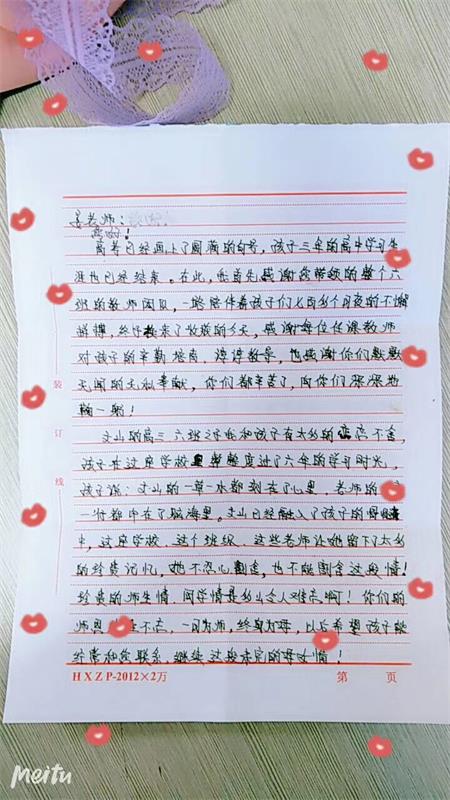 老师：
您好！
高考已经画上了圆满的句号，孩子三年的高中学习生
涯也已经结束。在此，您首先感谢您带领的整个六
班的教师团队，一路陪伴着孩子们七百多个日夜的不懈
拼搏，终于换来了收获的今天，感谢每位任课教师
对孩子的辛勤培育、谆谆教导，也感谢你们默默
无闻的无私奉献，你们都辛苦了，向你们深深地
鞠一躬！
文山的高三六班之于我和孩子有太多的恋恋不舍，
孩子在这座学校里度过了六年的学习时光，
孩子说：文山的一草一木都刻在了心里，老师的
一切都印在了脑海里。文山已经融入了孩子的
生，这座学校、这个班级、这些老师让她留下了太多
的珍贵记忆，她不忍心割走，也不能割舍这段情！
珍贵的师生情、同学情是多么令人难忘啊！你们的
师恩 不忘，一日为师，终身为母，以后希望孩子能
经常和您联系，继续这段亲密的母女情！
HXZP-2012×2万
第 页
装
订
线
meitu